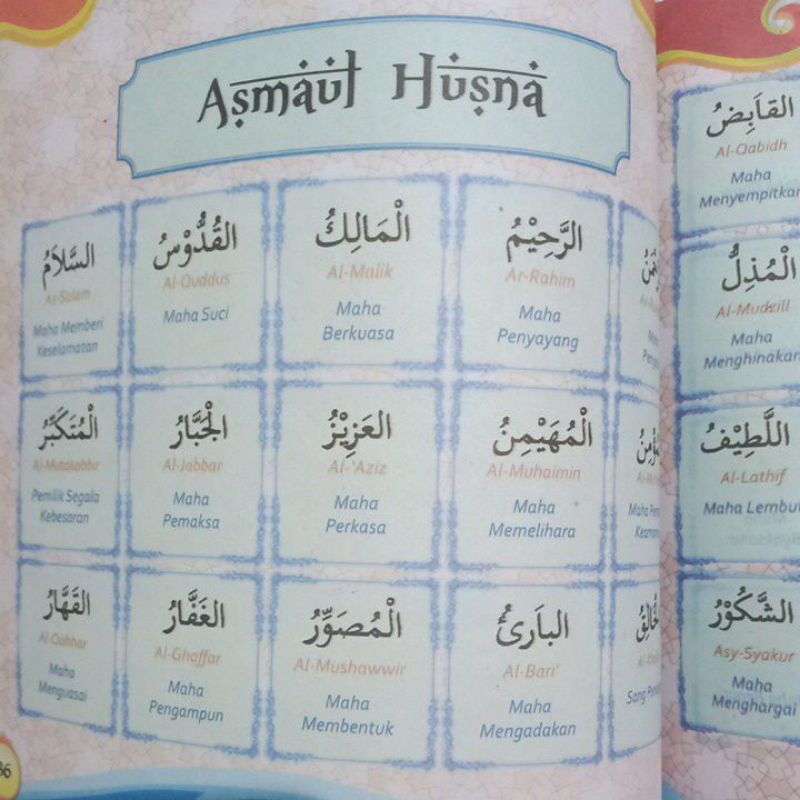 Asmaul Husna
الرَّحِيْمُ
Ar-Rahim
Maha
Penyayang
الْمَالِكُ
Al-Malik
Maha
Berkuasa
القُدُّوْسُ
Al-Quddus
Maha Suci
السَّلاَمُ
As-Salam
Maha Memberi
Keselamatan
Maha
الْمُهَيْمِنُ
Al-Muhaimin
Maha
Memelihara
العَزِيْزُ
Al-'Aziz
Maha
Perkasa
الْجَبَّارُ
Al-Jabbar
Maha
Pemaksa
الْمُتَكَبِّرُ
Al-Mutakabbir
Pemilik Segala
Kebesaran
Sang
البَارِئُ
Al-Bari'
Maha
Mengadakan
الْمُصَوِّرُ
Al-Mushawwir
Maha
Membentuk
الغَفَّارُ
Al-Ghaffar
Maha
Pengampun
القَهَّارُ
Al-Qahhar
Maha
Menguasai
القَابِضُ
Al-Qabidh
Maha
Menyempitkan
الْمُذِلُّ
Al-Mudzill
Maha
Menghinakan
اللَّطِيْفُ
Al-Lathif
Maha Lembut
الشَّكُوْرُ
Asy-Syakur
Maha
Menghargai